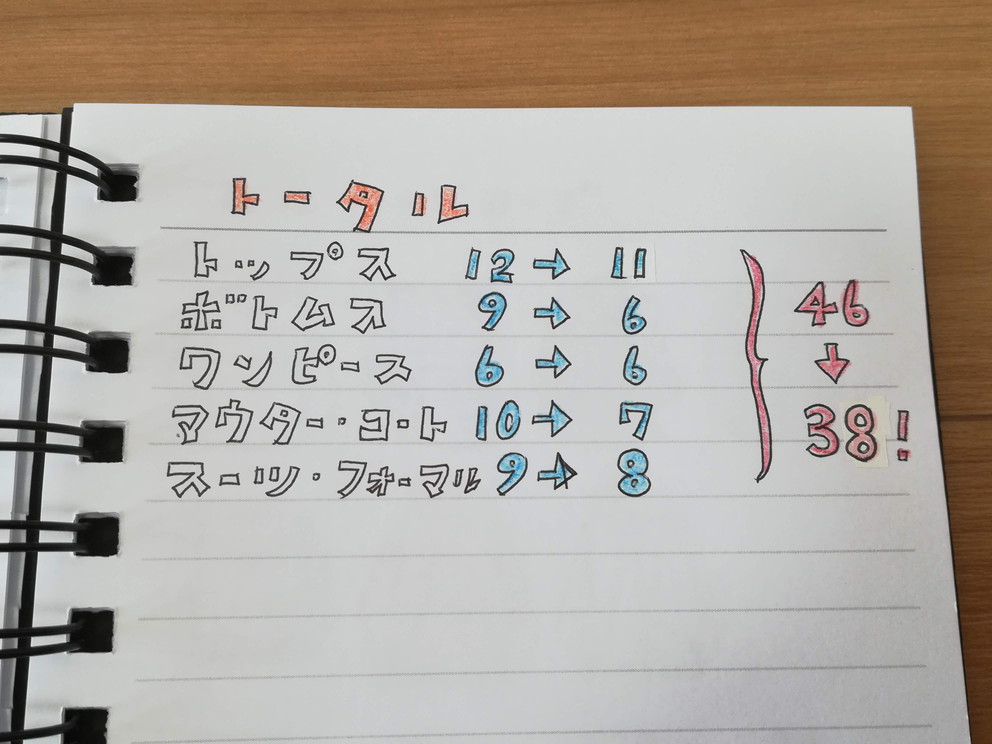 トータル
トップス 12→11
ボトムス 9→6
ワンピース 6→6
アウター・コート 10→7
スーツ・フォーマル 9→8
46
↓
38!